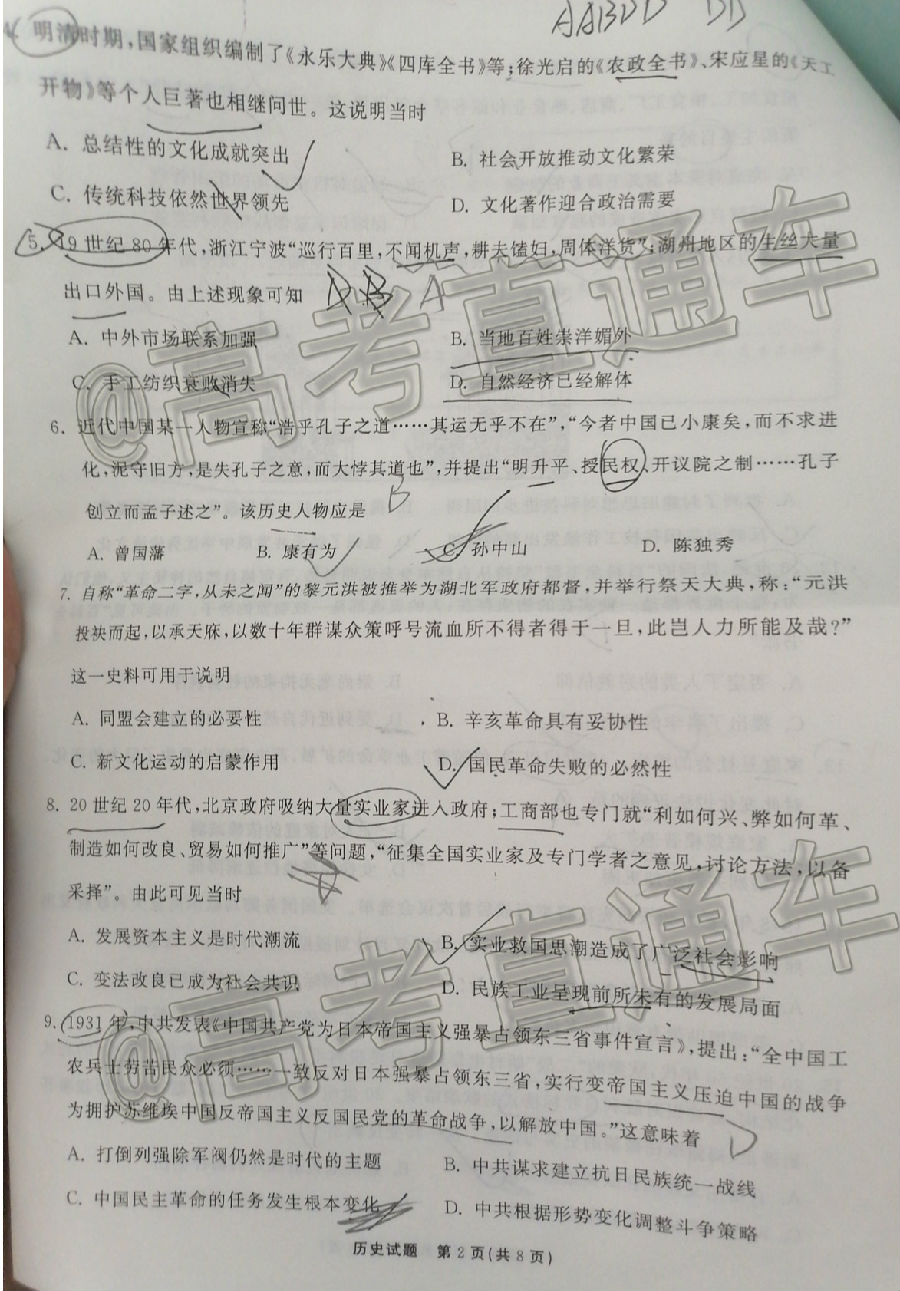 AABDD BD
明清时期,国家组织编制了《永乐大典》《四库全书》等;徐光启的《农政全书》、宋应星的《天工
开物》等个人巨著也相继问世。这说明当时
A. 总结性的文化成就突出
B. 社会开放推动文化繁荣
C. 传统科技依然世界领先
D. 文化著作迎合政治需要
5. 19世纪80年代,浙江宁波“巡行百里,不闻机声,耕夫馌妇,周体洋货”;湖州地区的生丝大量
出口外国。由上述现象可知
A. 中外市场联系加强
B. 当地百姓崇洋媚外
C. 手工纺织衰败消失
D. 自然经济已经解体
6. 近代中国某一人物宣称“浩乎孔子之道……其运无乎不在”,“今者中国已小康矣,而不求进
化,泥守旧方,是失孔子之意,而大悖其道也”,并提出“明升平、授民权、开议院之制……孔子
创立而孟子述之”。该历史人物应是
B
A. 曾国藩
B. 康有为
C. 孙中山
D. 陈独秀
7. 自称“革命二字,从未之闻”的黎元洪被推举为湖北军政府都督,并举行祭天大典,称:“元洪
投袂而起,以承天庥,以数十年群谋众策呼号流血所不得者得于一旦,此岂人力所能及哉?”
这一史料可用于说明
A. 同盟会建立的必要性
B. 辛亥革命具有妥协性
C. 新文化运动的启蒙作用
D. 国民革命失败的必然性
8. 20世纪20年代,北京政府吸纳大量实业家进入政府;工商部也专门就“利如何兴、弊如何革、
制造如何改良、贸易如何推广”等问题,“征集全国实业家及专门学者之意见,讨论方法,以备
采择”。由此可见当时
A. 发展资本主义是时代潮流
B. 实业救国思潮造成了广泛社会影响
C. 变法改良已成为社会共识
D. 民族工业呈现前所未有的发展局面
9. 1931年,中共发表《中国共产党为日本帝国主义强暴占领东三省事件宣言》,提出:“全中国工
农兵士劳苦民众必须……一致反对日本强暴占领东三省,实行变帝国主义压迫中国的战争
为拥护苏维埃中国反帝国主义反国民党的革命战争,以解放中国。”这意味着
D
A. 打倒列强除军阀仍然是时代的主题
B. 中共谋求建立抗日民族统一战线
C. 中国民主革命的任务发生根本变化
D. 中共根据形势变化调整斗争策略
历史试题 第2页(共8页)
@高考直通车
@高考直通车